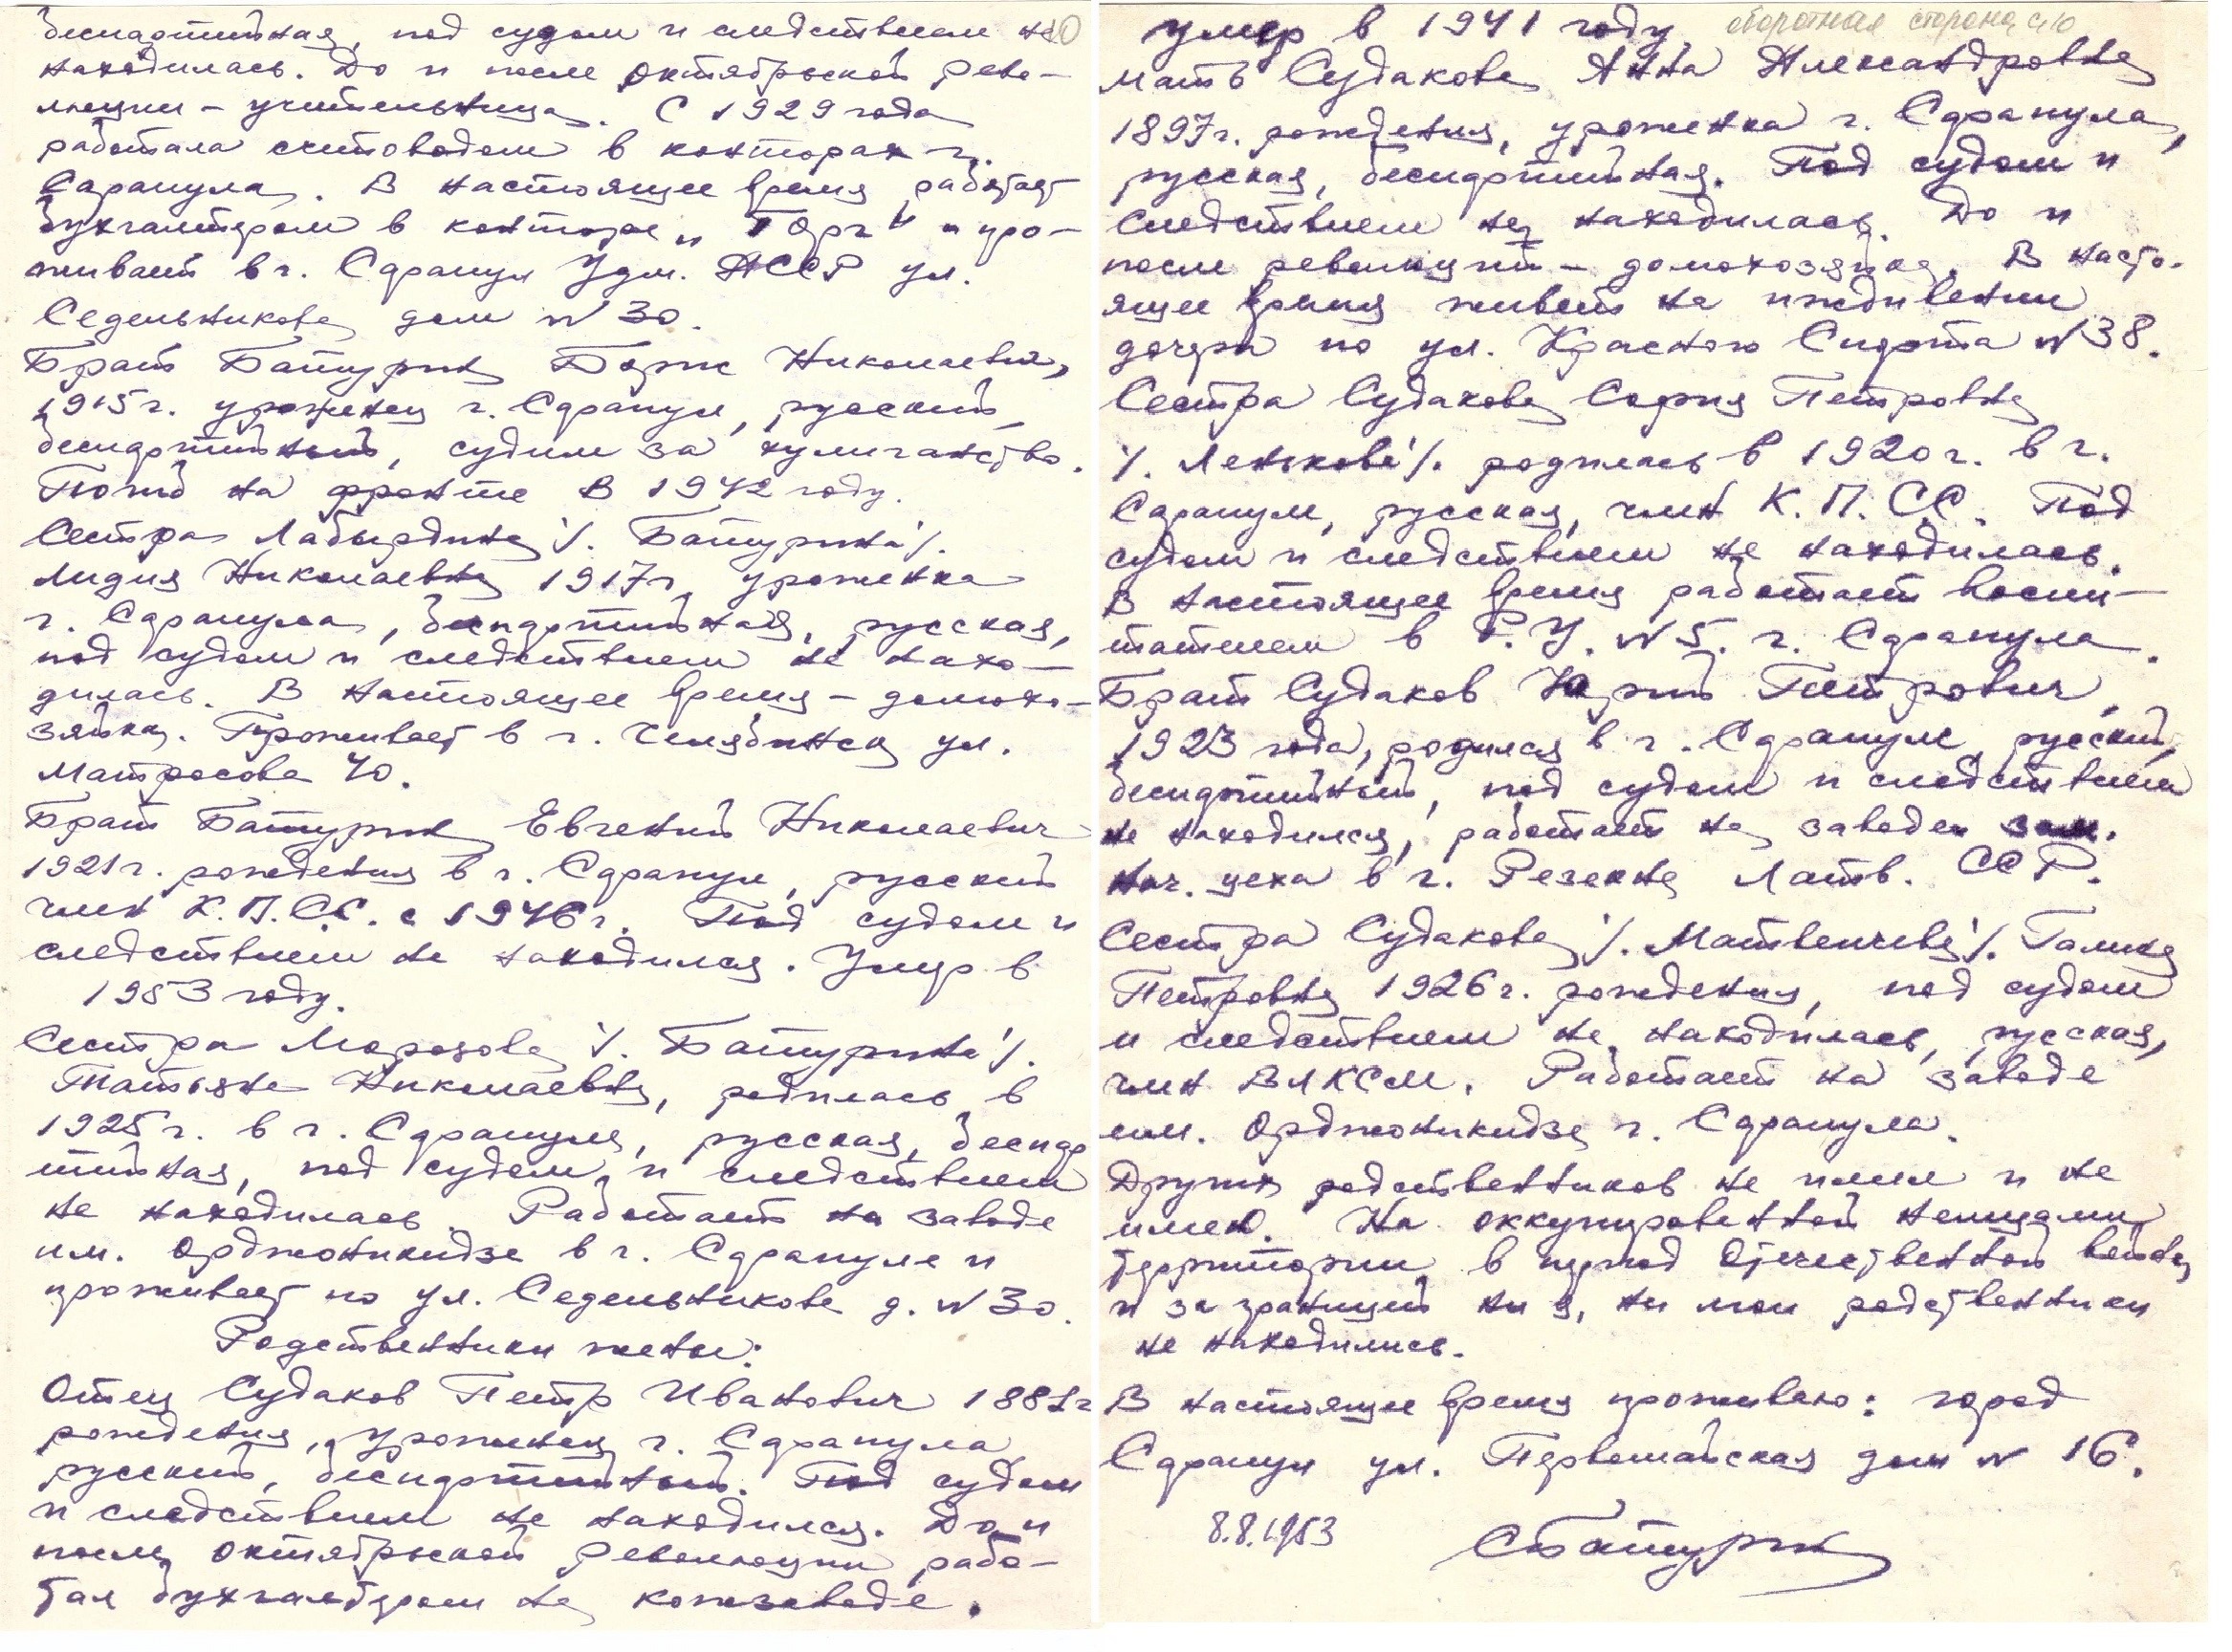 беспартийная, под судом и следствием не 10
находилась. До и после Октябрьской рево-
люции – учительница. С 1929 года
работала счетоводом в конторах г.
Сарапула. В настоящее время работает
бухгалтером в конторе „Торг“ и про-
живает в г. Сарапул Удм. АССР ул.
Седельникова дом №30.
Брат Батурин Борис Николаевич,
1915г. уроженец г. Сарапул, русский,
беспартийный, судим за хулиганство.
Погиб на фронте в 1942 году.
Сестра Лабырдина /. Батурина/.
Лидия Николаевна 1917г, уроженка
г. Сарапула, беспартийная, русская,
под судом и следствием не нахо-
дилась. В настоящее время – домохо-
зяйка. Проживает в г. Челябинск ул.
Матросова 40.
Брат Батурин Евгений Николаевич
1921г. рождения в г. Сарапул, русский
член К.П.СС. с 1946г. Под судом и
следствием не находился. Умер в
1953 году.
Сестра Морозова /. Батурина/.
Татьяна Николаевна, родилась в
1925г. в г. Сарапуле, русская, беспар
тийная, под судом и следствием
не находилась. Работает на заводе
им. Орджоникидзе в г. Сарапуле и
проживает по ул. Седельникова д. №30.
Родственники жены:
Отец Судаков Петр Иванович 1881г
рождения, уроженец г. Сарапула
русский, беспартийный. Под судом
и следствием не находился. До и
после Октябрьской революции рабо-
тал бухгалтером на кожзаводе.
умер в 1941 году оборотная сторона с10
Мать Судакова Анна Александровна
1897г. рождения, уроженка г. Сарапула,
русская, беспартийная. Под судом и
следствием не находилась. До и
после революции – домохозяйка. В насто-
ящее время живет на иждивении
дочери по ул. Красного Спорта №38.
Сестра Судакова София Петровна
/. Ленькова/. родилась в 1920г. в г.
Сарапуле, русская, член К.П.СС. Под
судом и следствием не находилась.
В настоящее время работает воспи-
тателем в Р.У. №5. г. Сарапула.
Брат Судаков Юрий Петрович,
1923 года, родился в г. Сарапуле, русский,
беспартийный, под судом и следствием
не находился, работает на заводе зам.
нач. цеха в г. Резекне Латв. ССР.
Сестра Судакова /. Матвеичева/. Галина
Петровна 1926г. рождения, под судом
и следствием не находилась, русская,
член ВЛКСМ. Работает на заводе
им. Орджоникидзе г. Сарапула.
Других родственников не имел и не
имею. На оккупированной немцами
территории в период Отечественной войны
и за границей ни я, ни мои родственники
не находились.
В настоящее время проживаю: город
Сарапул ул. Первомайская дом № 16.
8.8.1953 СБатурин